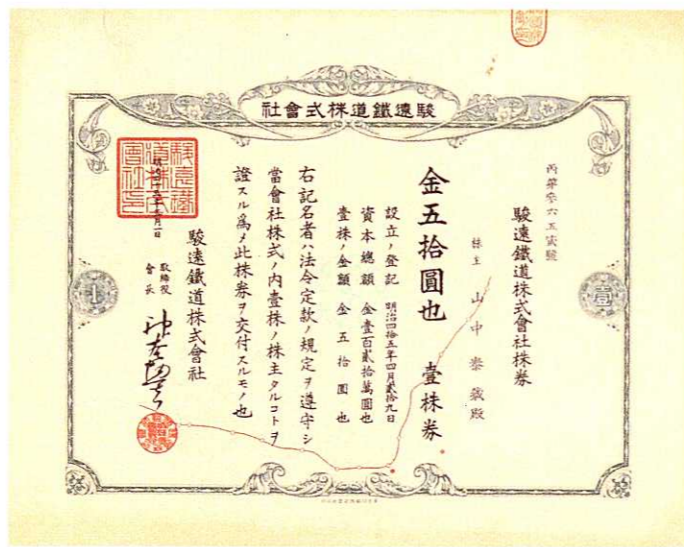 駿遠鐵道株式會社
丙第參六五貳號
駿遠鐵道株式會社株券
株主 山中泰藏殿
金五拾圓也 壹株券
設立ノ登記 明治四拾五年四月貳拾九日
資本總額 金壹百貳拾萬圓也
壹株ノ金額 金五拾圓也
右記名者ハ法令定款ノ規定ヲ遵守シ
當會社株式ノ内壹株ノ株主タルコトヲ
證スル爲メ此株券ヲ交付スルモノ也
駿遠鐵道株式會社
取締役
會長
壹
駿遠鐵道株式會社印